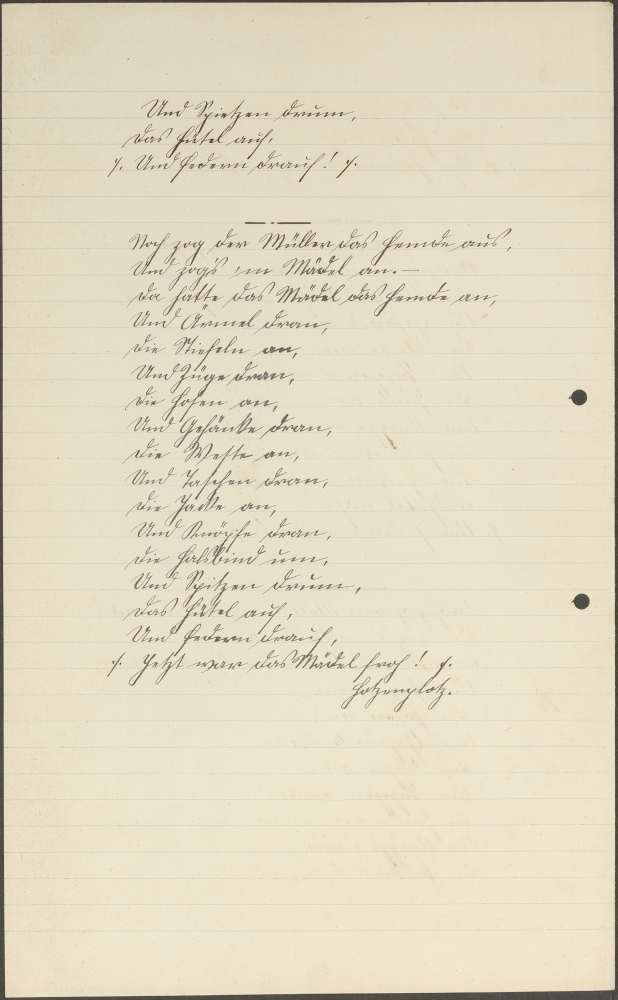 Und Spietzen drum,
Das Hütel auf,
·/. Und Federn drauf! ·/.
Noch zog der Müller das Hemde aus,
Und zog's 'm Mädel an. —
Da hatte das Mädel das Hemde an,
Und Ärmel dran,
Die Stiefeln an,
Und Züge dran,
Die Hosen an,
Und Gehänke dran,
Die Weste an,
Und Taschen dran,
Die Jacke an,
Und Knöpfe dran,
Die Halsbind um,
Und Spitzen drum,
Das Hütel auf,
Und Federn drauf,
·/. Jetzt war das Mädel froh! ·/.
Hotzenplotz.